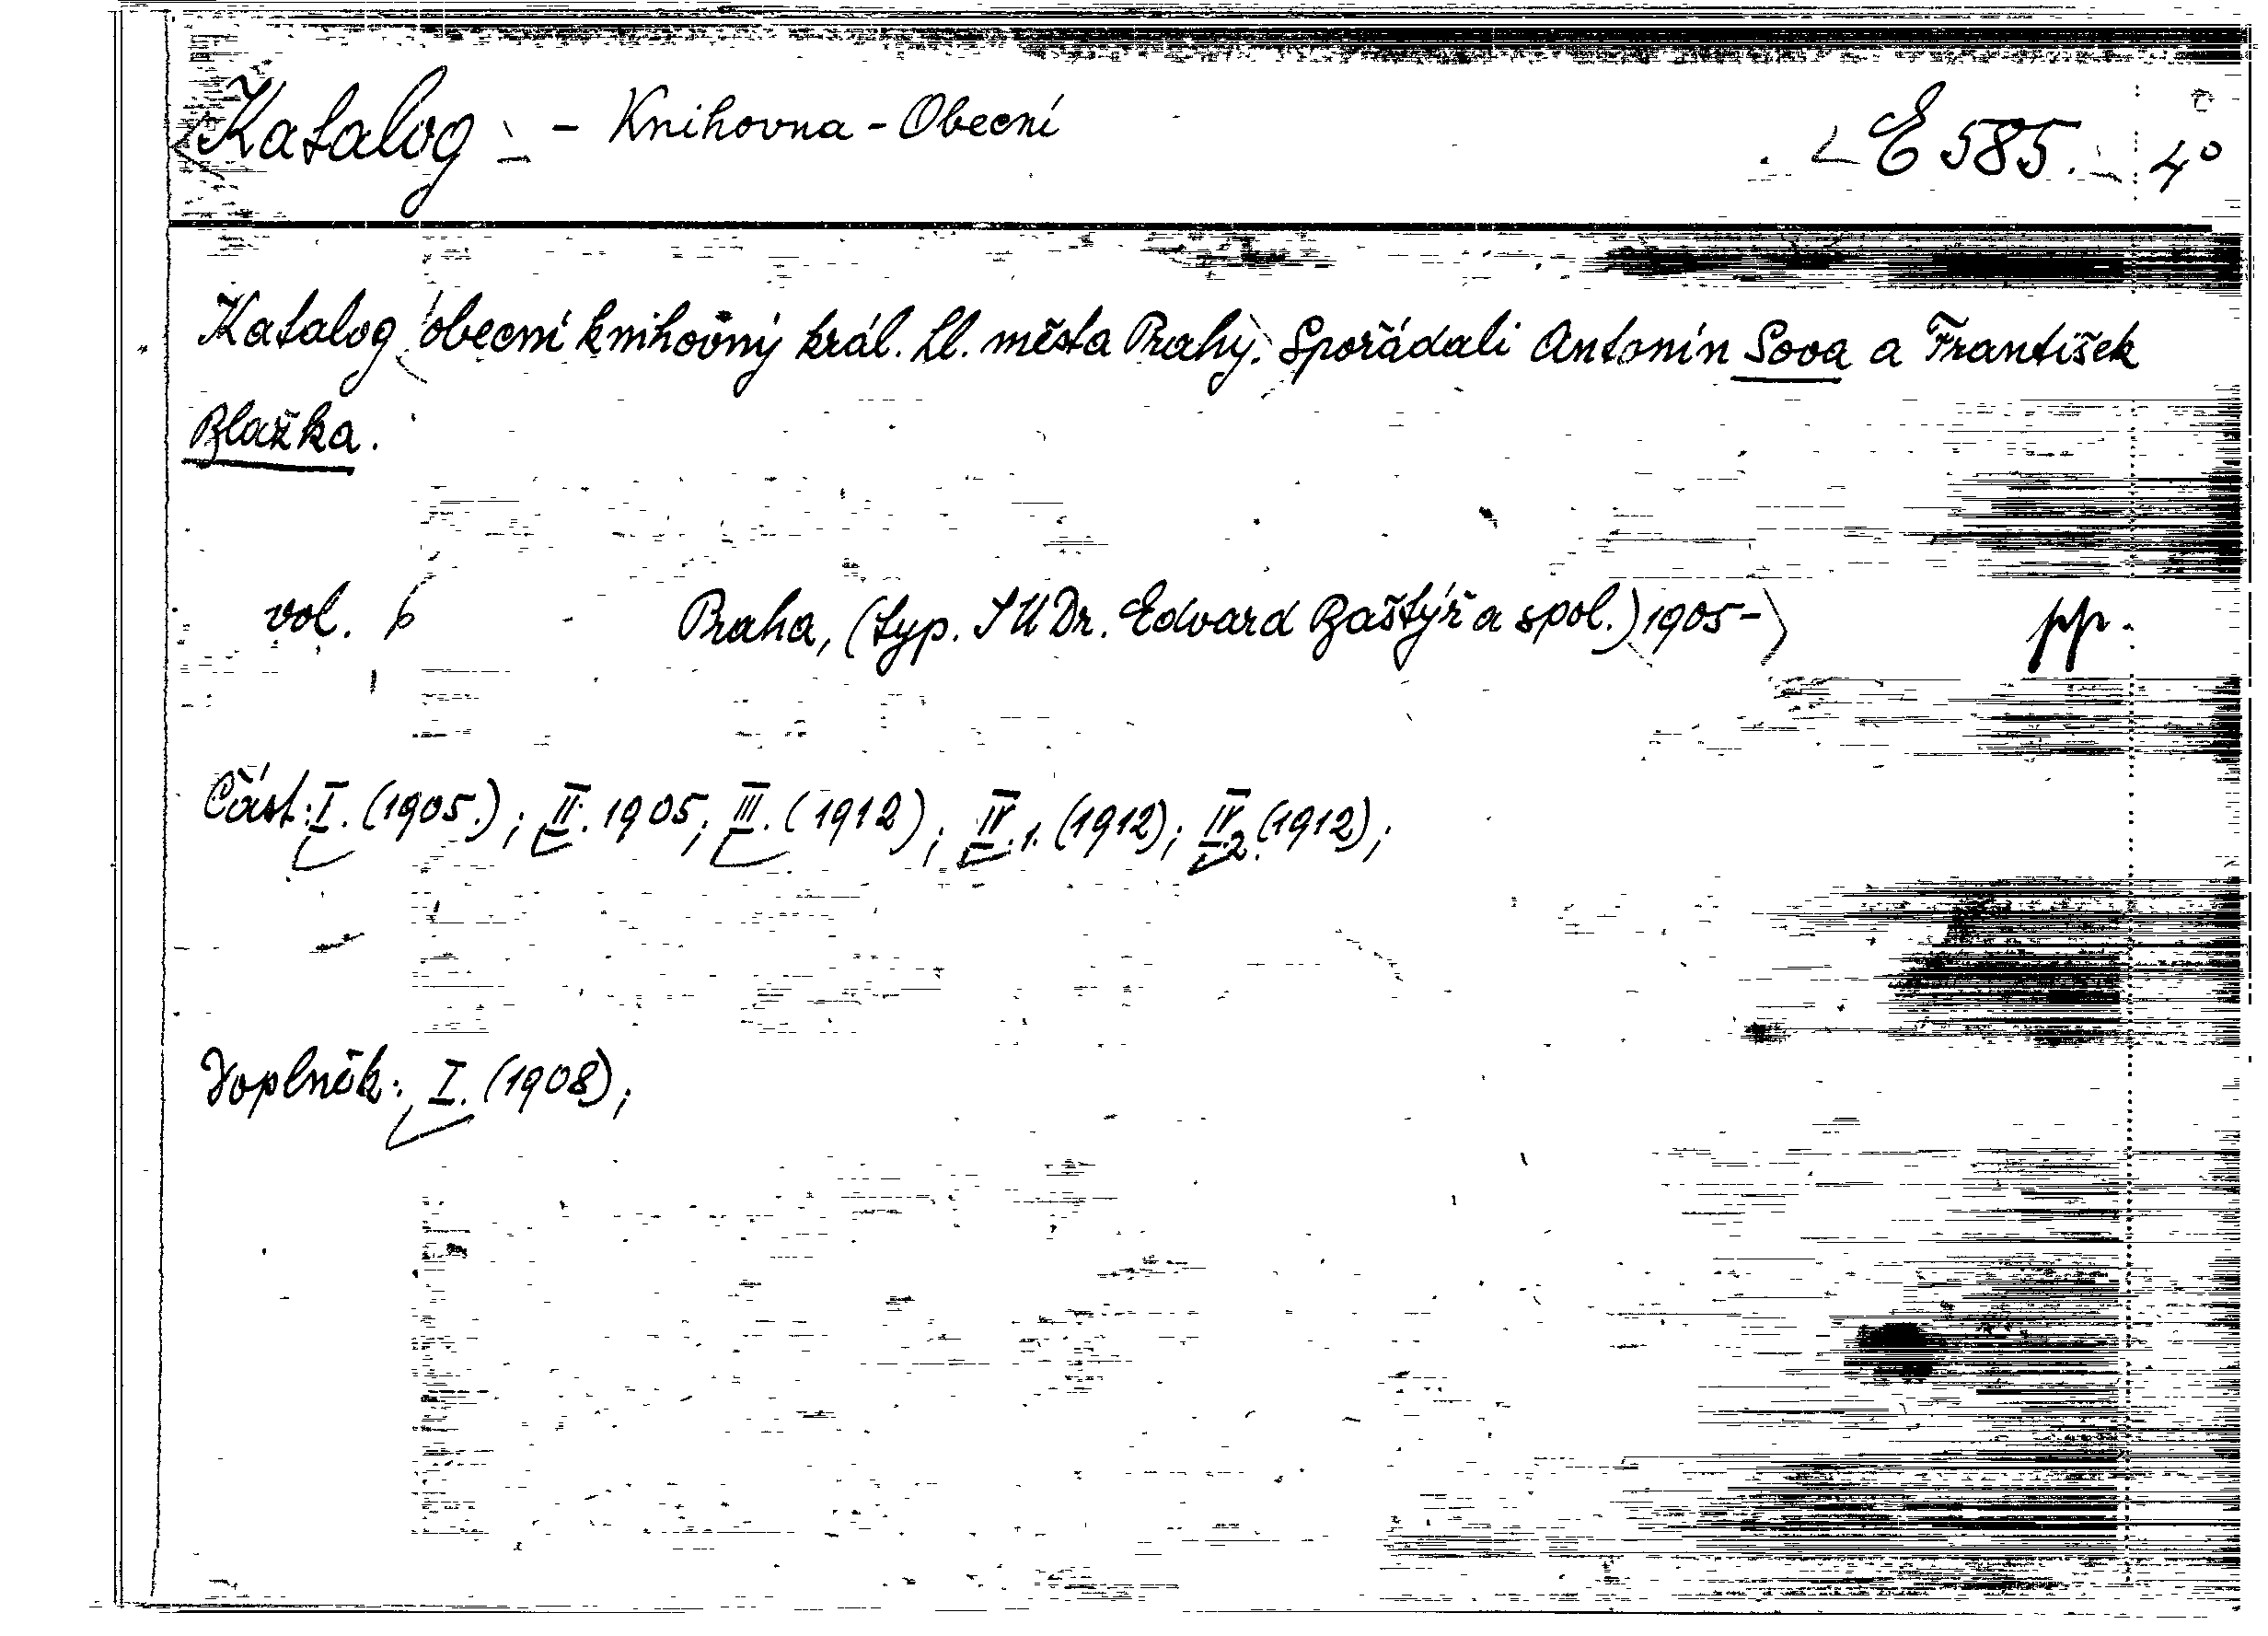 Katalog - Knihovna - Obecní E 585. 4°
Katalog obecní knihovny král. hl. města Prahy. Spořádali Antonín Sova a František
Blažka.
vol. 6 Praha, (typ. JUDr. Edvard Baštýř a spol.) 1905- pp.
Část: I. (1905.); II. 1905; III. (1912); IV.1. (1912); IV.2. (1912);
Doplněk: I. (1908);